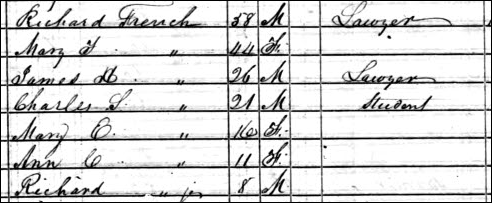 Richard French 58 M Lawyer
Mary T. " 44 F.
James H " 26 M Lawyer
Charles S. " 21 M Student
Mary E. " 16 F.
Ann C " 11 F.
Richard " jr 8 M